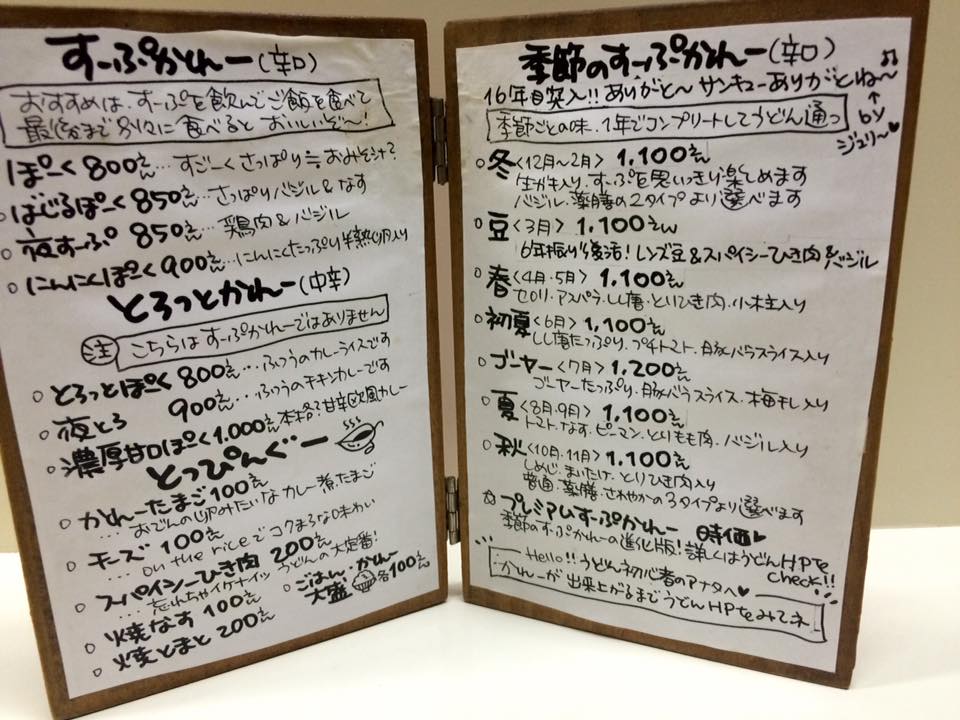 すーぷかれー(辛口)
おすすめは、すーぷを飲んでご飯を食べて
最後まで別々に食べるとおいしいぞ〜!
ぽーく 800えん…すごーくさっぱり≒おみそ汁?
○ばじるぽーく 850えん…さっぱりバジル&なす
○夜すーぷ 850えん…鶏肉&バジル
○にんにくぽーく 900えん…にんにくたっぷり半熟卵入り
とろっとかれー(中辛)
注 こちらはすーぷかれーではありません
○とろっとぽーく 800えん…ふつうのカレーライスです
○夜とろ 900えん…ふつうのチキンカレーです
○濃厚甘口ぽーく 1,000えん…本格的甘辛欧風カレー
とっぴんぐー
○かれーたまご 100えん
…おでんの卵みたいなカレー煮たまご
○チーズ 100えん
…on the riceでコクまろな味わい
○スパイシーひき肉 200えん
…忘れちゃイケナイッうどんの大定番!
○焼なす 100えん
○焼とまと 200えん
○ごはん・かれー
大盛 各100えん
季節のすーぷかれー(辛口)
16年目突入!!ありがと〜サンキューありがとね〜♫
↑
by
ジュリ〜♥
季節ごとの味、1年でコンプリートしてうどん通っ
○冬<12月〜2月> 1,100えん
生がき入り、すーぷを思いっきり楽しめます
バジル、薬膳の2タイプより選べます
○豆<3月> 1,100えん
6年振り復活!レンズ豆&スパイシーひき肉&バジル
○春<4月・5月> 1,100えん
セロリ・アスパラ・しし唐・とりひき肉・小柱入り
○初夏<6月> 1,100えん
しし唐たっぷり、プチトマト、豚バラスライス入り
○ゴーヤー<7月> 1,200えん
ゴーヤーたっぷり、豚バラスライス、梅干し入り
○夏<8月・9月> 1,100えん
トマト、なす、ピーマン、とりもも肉、バジル入り
○秋<10月・11月> 1,100えん
しめじ、まいたけ、とりひき肉入り
普通・薬膳・さわやかの3タイプより選べます
☆プレミアムすーぷかれー 時価♥
季節のすーぷかれーの進化版!詳しくはうどんHPを
check!!
Hello!!うどん初心者のアナタへ♥
かれーが出来上がるまでうどんHPをみてネ